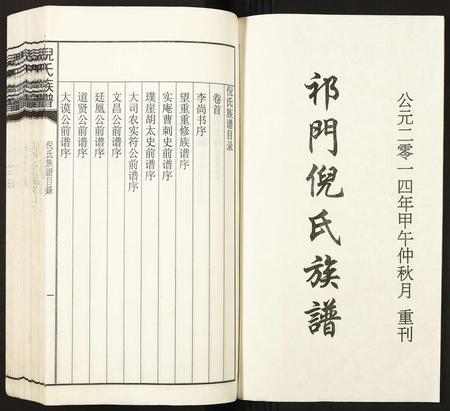 公元二零一四年甲午仲秋月 重刊
祁門倪氏族譜
倪氏族谱目录
卷首
李尚书序
望重重修族谱序
实庵曹刺史前谱序
璞崖胡太史前谱序
大司农实符公前谱序
文昌公前谱序
廷凰公前谱序
道贤公前谱序
大谟公前谱序
倪氏族譜目録
一
倪氏族譜